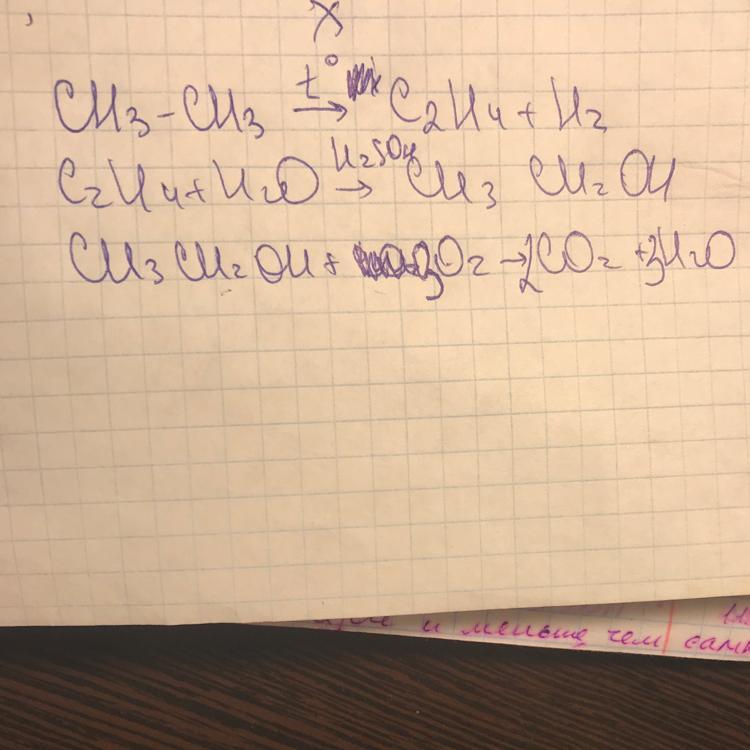 X
CH₃–CH₃ t° → C₂H₄ + H₂
C₂H₄ + H₂O H₂SO₄ → CH₃ CH₂ OH
CH₃ CH₂ OH + 3O₂ → 2CO₂ + 3H₂O
и меньше чем